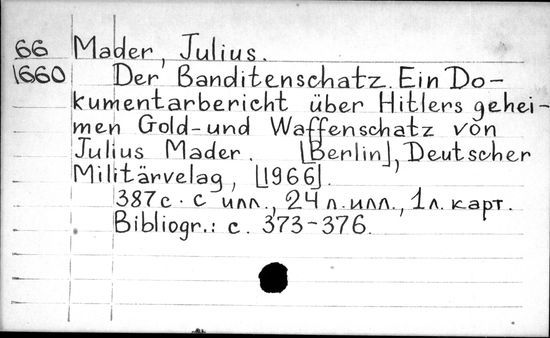 66 Mader, Julius.
1660 Der Banditenschatz. Ein Do-
kumentarbericht über Hitlers gehei-
men Gold- und Waffenschatz von
Julius Mader. [Berlin], Deutscher
Militärvelag, [1966].
387 с. с илл., 24 л. илл., 1 л. карт.
Bibliogr.: с. 373-376.